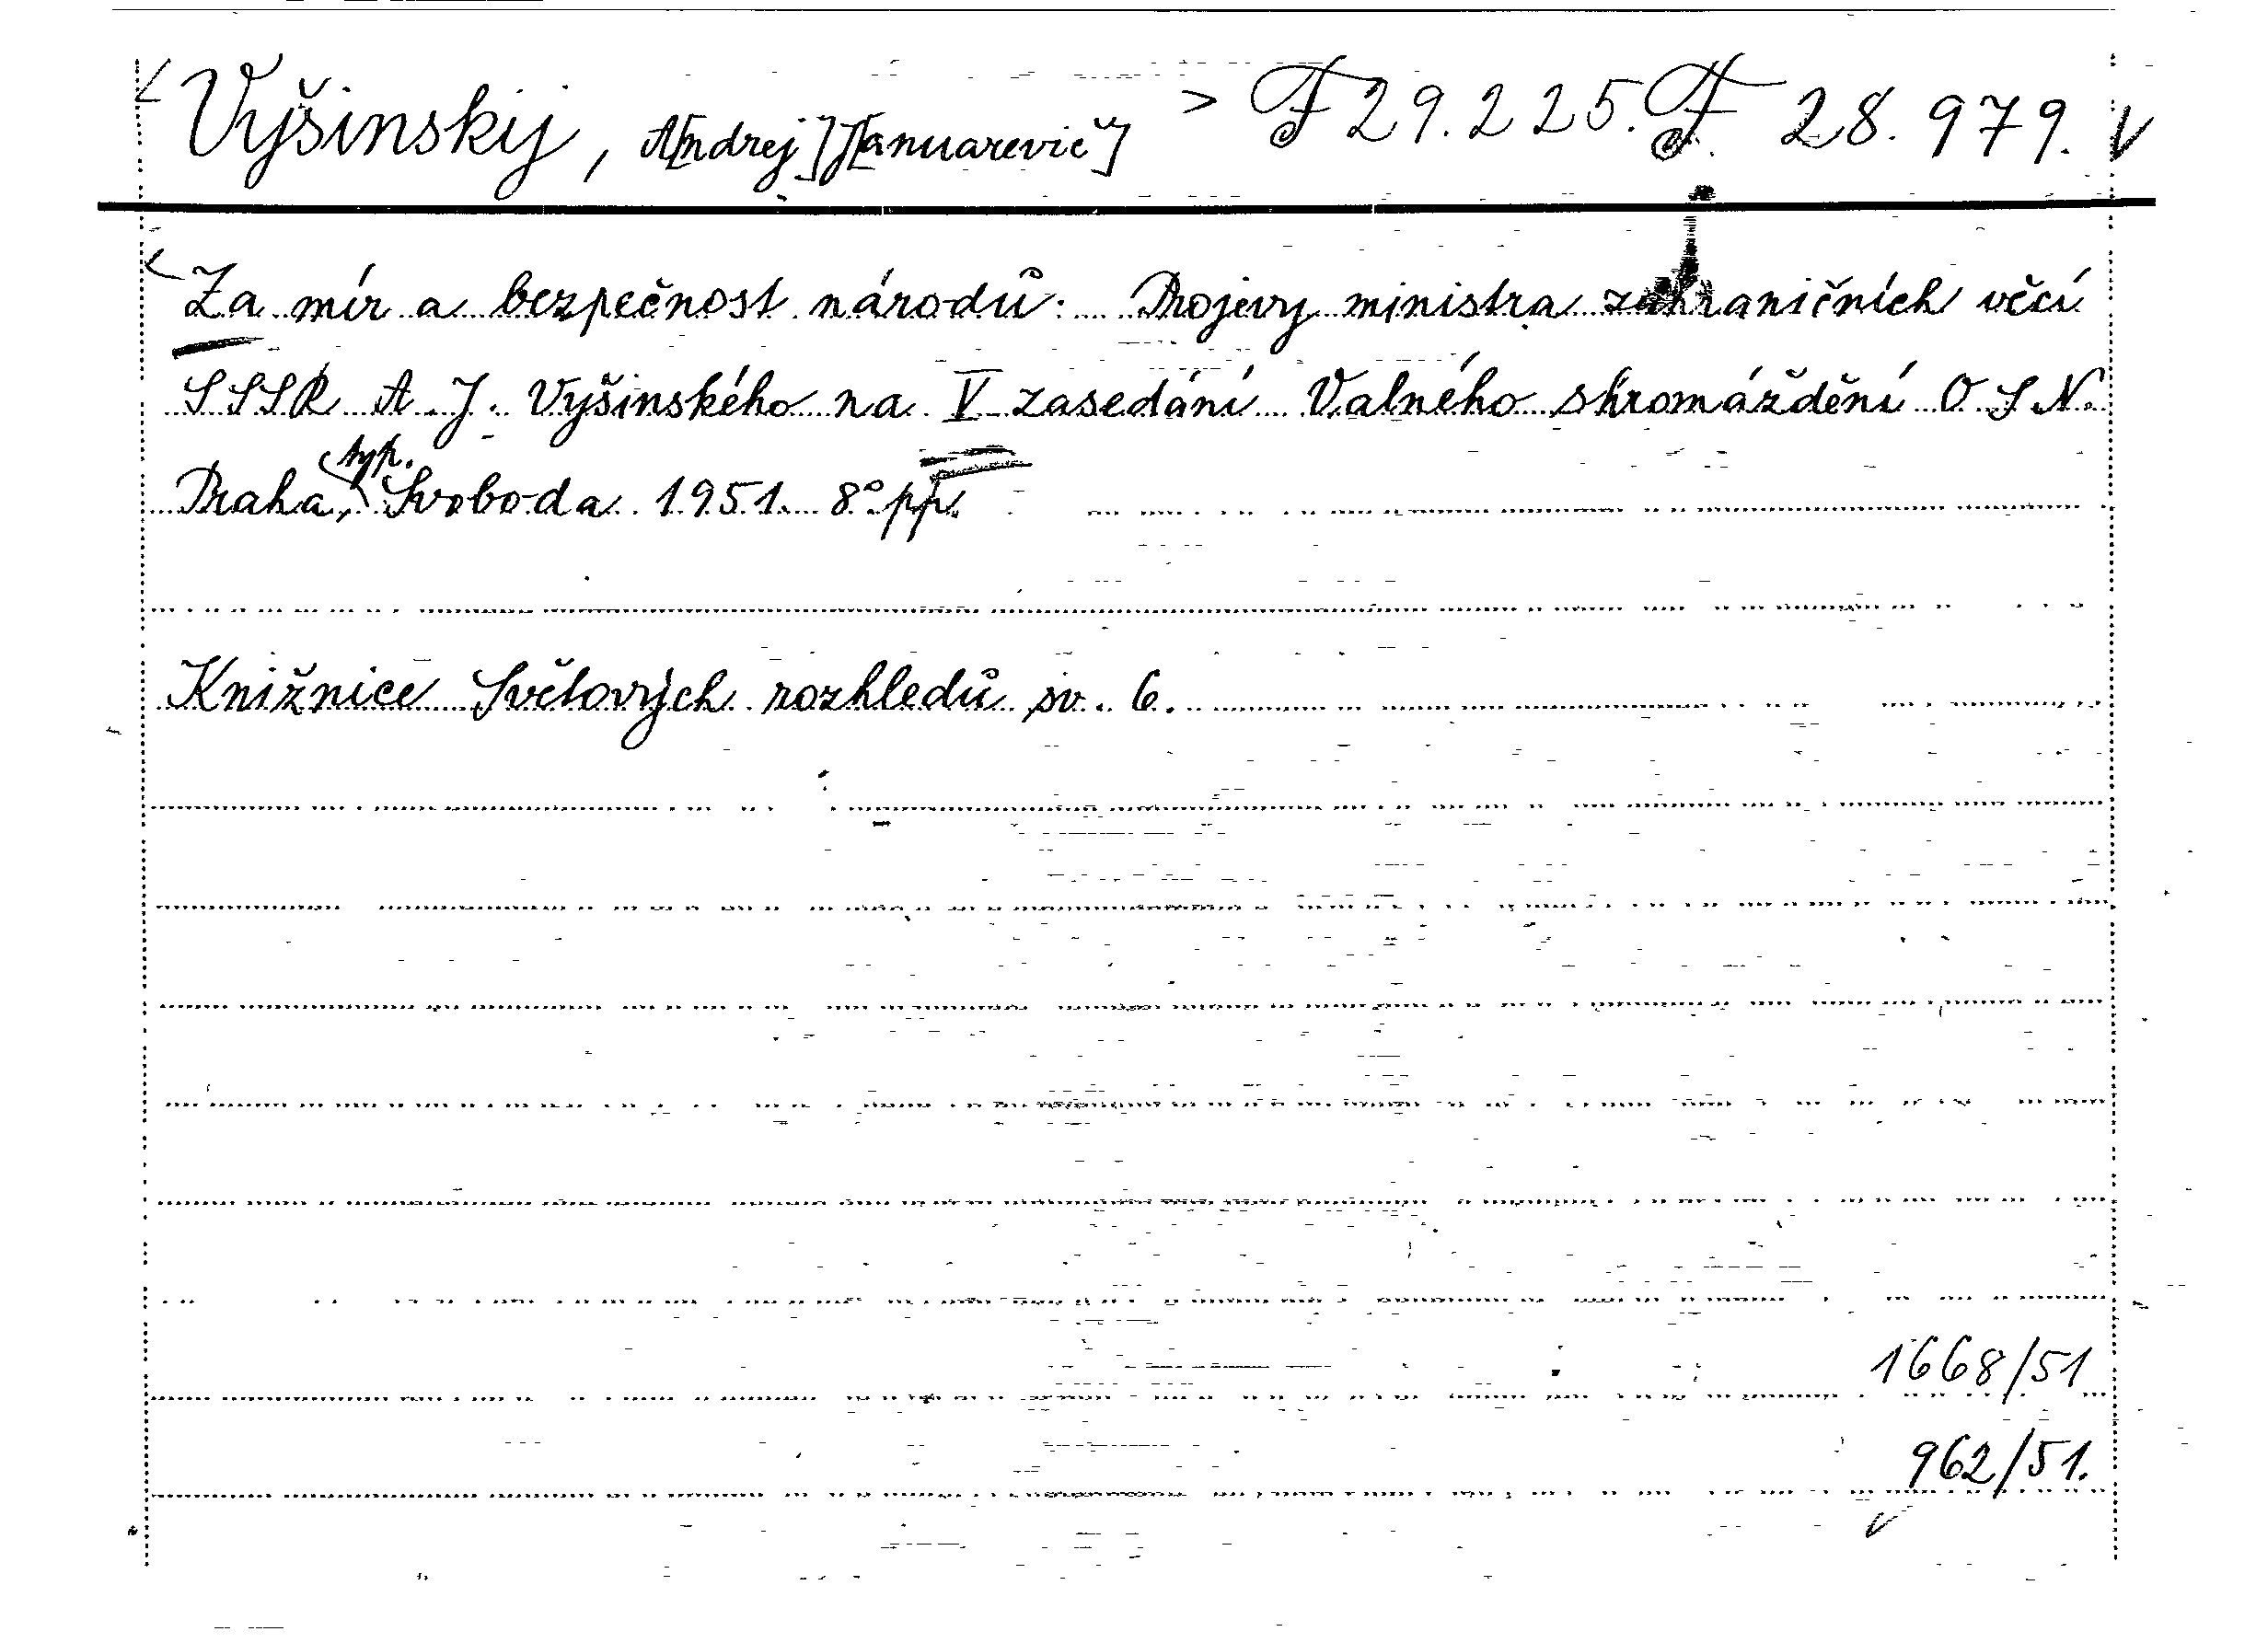 Vyšinskij, A[ndrej] J[anuarevič] F 29.225. F 28.979.
Za mír a bezpečnost národů. Projevy ministra zahraničních věcí
SSSR A. J. Vyšinského na V zasedání Valného shromáždění OSN.
Praha, typ. Svoboda 1951. 8° pp.
Knižnice Světových rozhledů sv. 6.
1668/51
962/51.